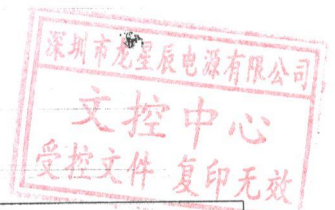 深圳市龙星辰电源有限公司
文控中心
受控文件 复印无效